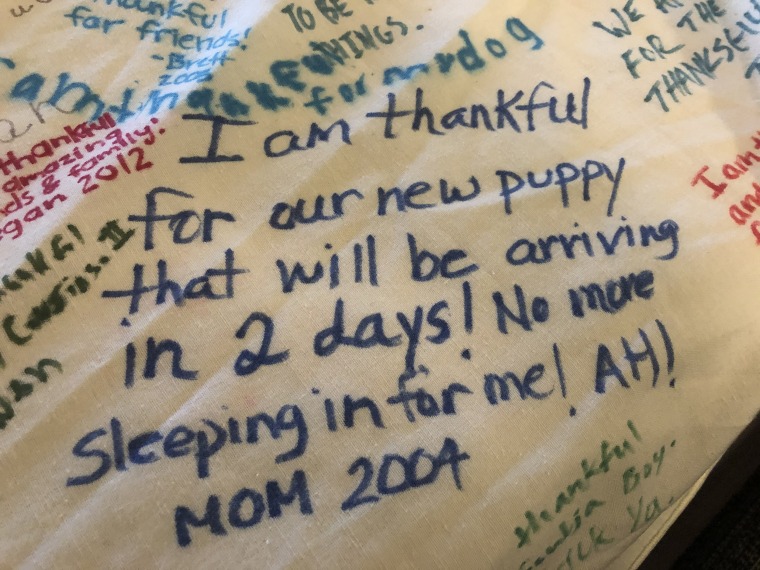 thankful
for friends!
-Brett
2005
TO BE
THINGS.
WE
FOR THE
for my dog
thankful
amazing
& family!
2012
I am thankful
for our new puppy
that will be arriving
in 2 days! No more
Sleeping in for me! AH!
MOM 2004
I am
thankful
Boy.